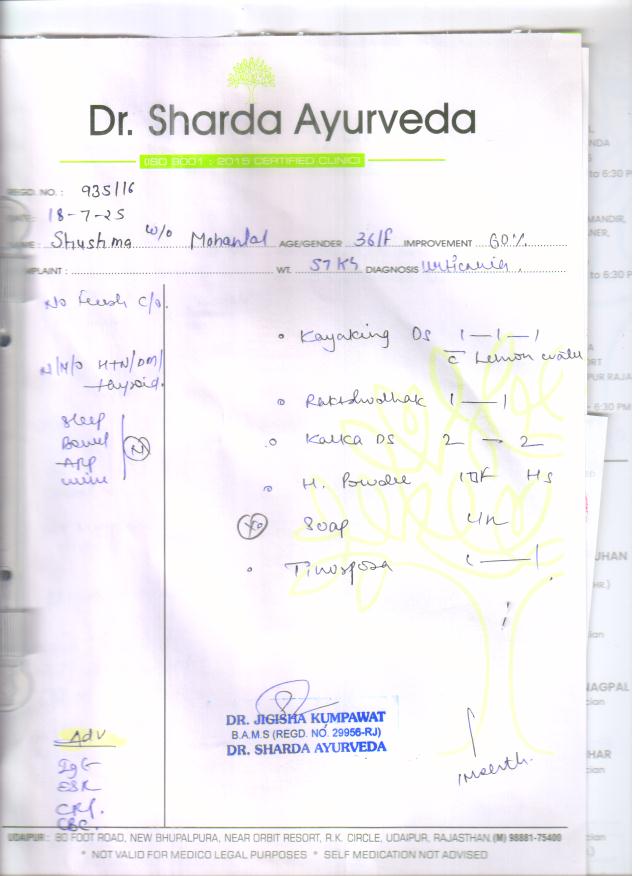 Dr. Sharda Ayurveda
(ISO 9001 : 2015 CERTIFIED CLINIC)
REGD. NO. : 935/16
DATE : 18-7-25
NAME : Shushma w/o Mohanlal AGE/GENDER 36/F IMPROVEMENT 60%
COMPLAINT : WT. 57 KG DIAGNOSIS Urticaria
No fresh c/o.
N/H/O HTN/DM/
thyroid.
Sleep
Bowel
App
urine
N
Kayaking DS 1 — 1 — 1
c̄ Lemon water
Raktshodhak 1 — 1
Kalka DS 2 — 2
H. Powder HS
Soap
Tinospora 1 — 1
1 month.
DR. JIGISHA KUMPAWAT
B.A.M.S (REGD. NO. 29956-RJ)
DR. SHARDA AYURVEDA
Adv
IgG
ESR
CRP
CBC.
UDAIPUR : 80 FOOT ROAD, NEW BHUPALPURA, NEAR ORBIT RESORT, R.K. CIRCLE, UDAIPUR, RAJASTHAN, (M) 98881-75400
* NOT VALID FOR MEDICO LEGAL PURPOSES * SELF MEDICATION NOT ADVISED